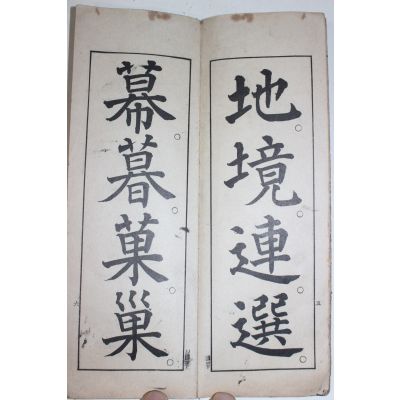 地境連選
五
幕暮菓巢
六